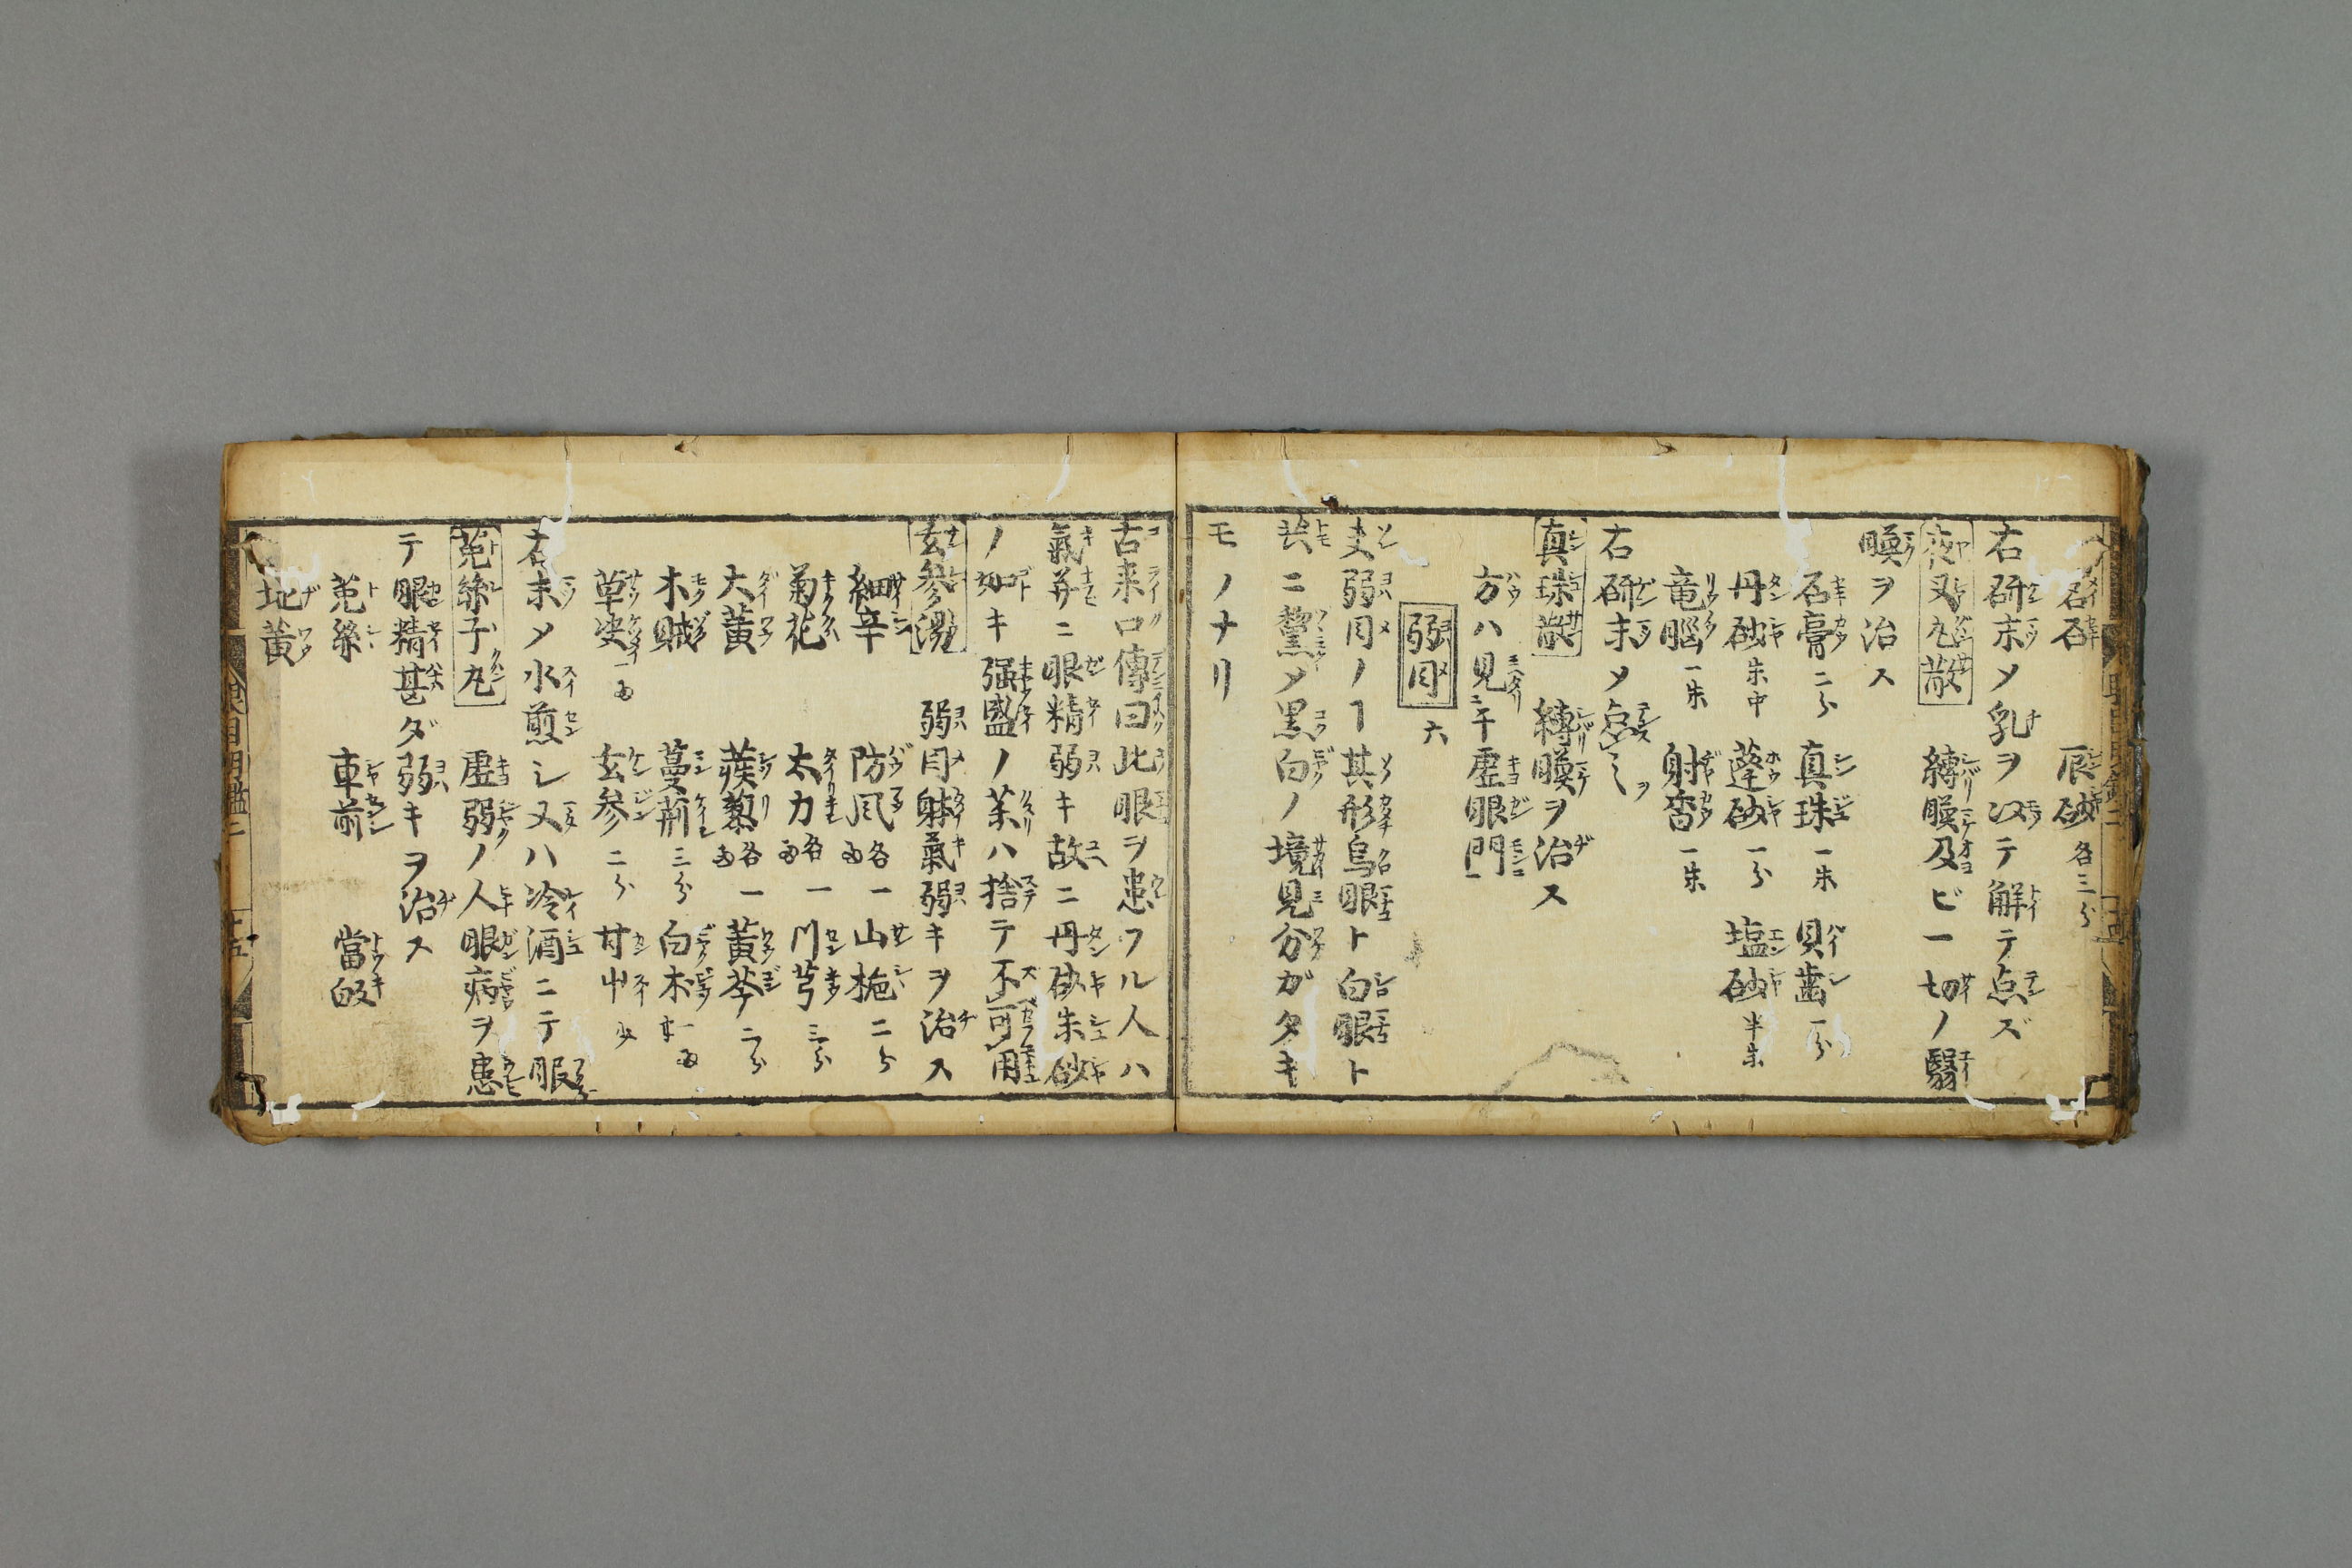 石　辰砂各三分
右研末メ乳ヲ以テ解テ点ズ
夜叉丸散　縛膜及ビ一切ノ翳
膜ヲ治ス
石膏二分　真珠一朱　貝歯一分
丹砂朱中　蓬砂一分　塩砂半朱
竜脳一朱　射香一朱
右研末メ点之
真珠散　縛膜ヲ治ス
方ハ見于虚眼門
弱目　六
夫弱目ノヿ其形烏眼ト白眼ト
共ニ黧メ黒白ノ境見分ガタキ
モノナリ
古来口傳曰此眼ヲ患フル人ハ
氣并ニ眼精弱キ故ニ丹砂朱砂
ノ如キ強盛ノ茱ハ捨テ不可用
玄参湯　弱目躰氣弱キヲ治ス
細辛　防風各一両　山梔二分
菊花　太力各一両　川芎三分
大黄　蒺藜各一両　黄芩二分
木賊　蔓荊三分　白朮一両
草决一両　玄参二分　甘艸少
右末メ水煎シ又ハ冷酒ニテ服
菟絲子丸　虚弱ノ人眼病ヲ患
テ眼精甚ダ弱キヲ治ス
菟絲　車前　當皈
地黄
眼目明鑑二
十五